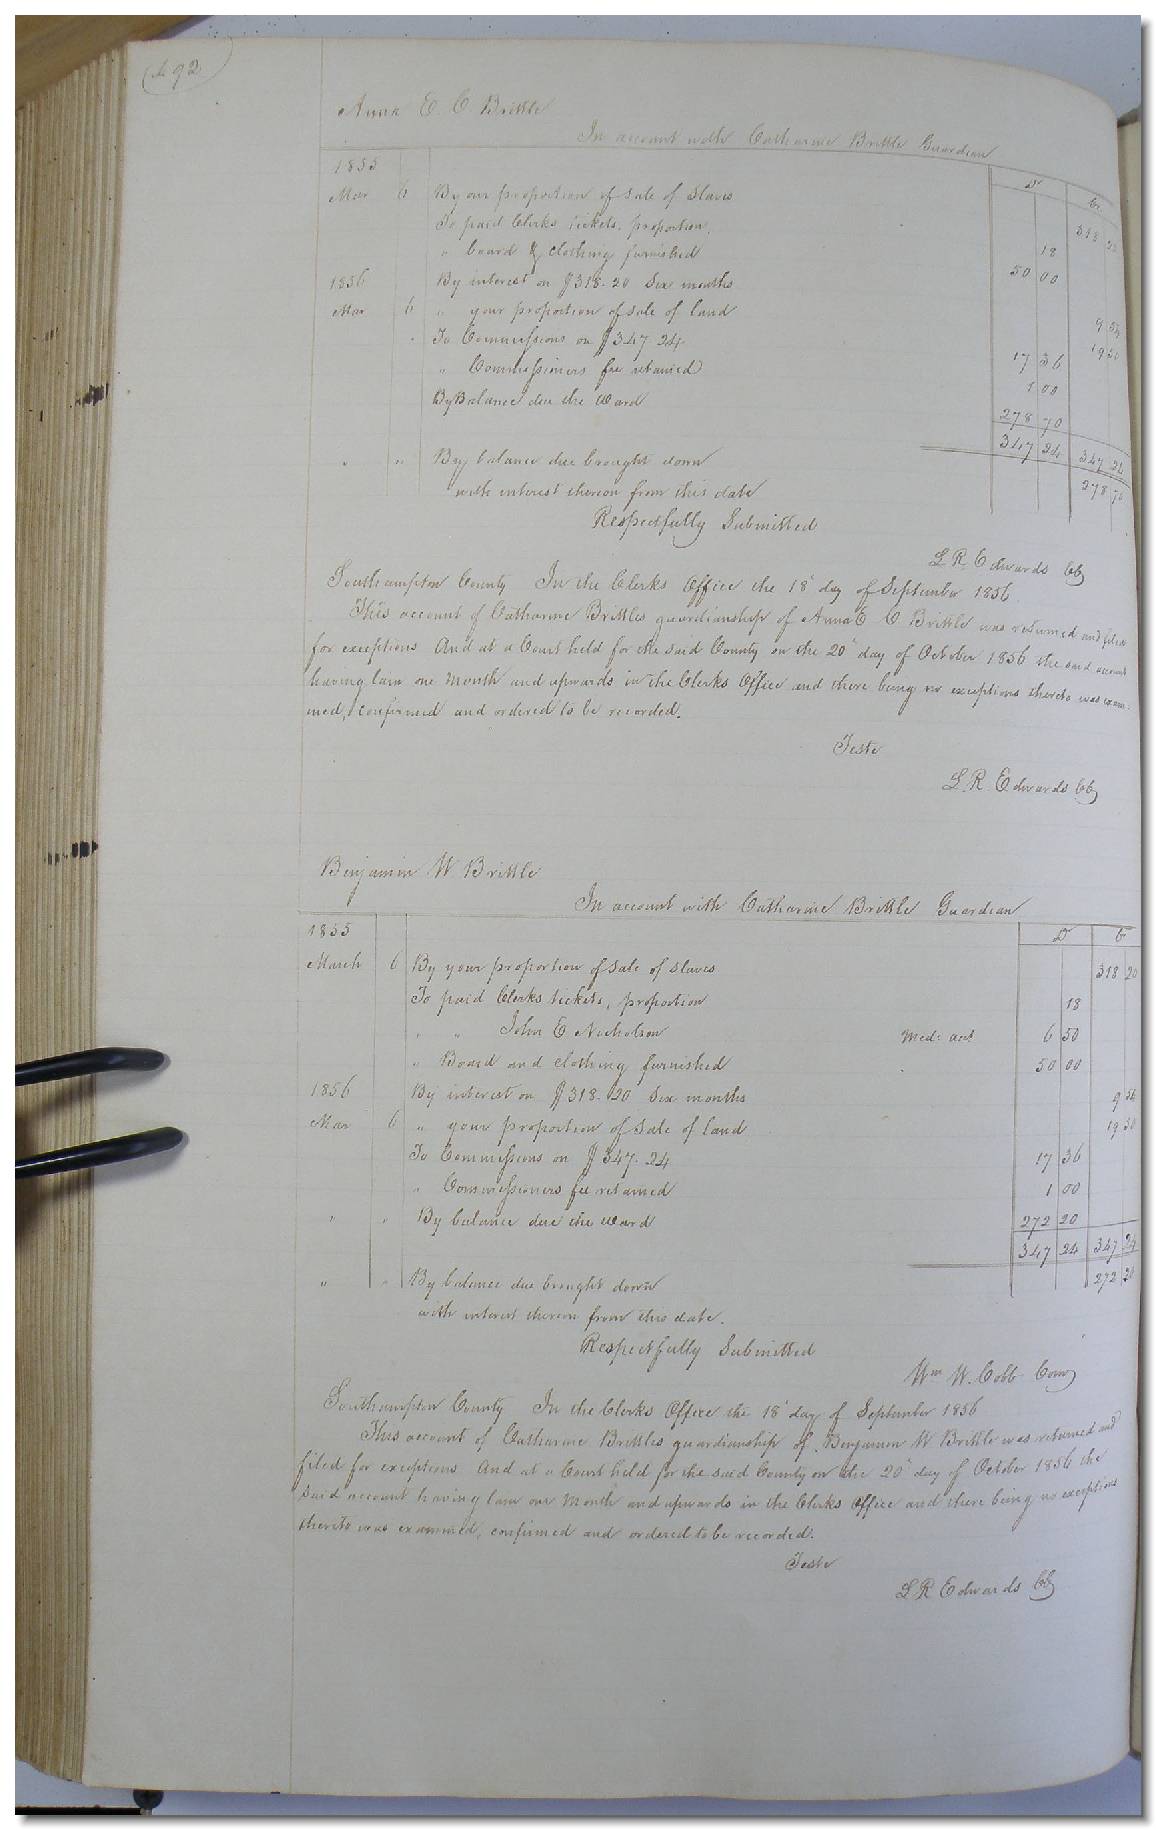 492
Anna E. C. Brittle
In account with Catharine Brittle Guardian
1855 Dr Cr
Mar 6 By our proportion of Sale of Slaves 318 20
To paid Clerks tickets, proportion, 18
" board & clothing furnished 50 00
1856 By interest on $318.20 Six months 9 54
Mar 6 " your proportion of Sale of land 19 50
" To Commissions on $347 24 17 36
" Commissioners fee retained 1 00
By Balance due the Ward 278 70
347 24 347 24
" " By balance due brought down 278 70
with interest thereon from this date
Respectfully Submitted
L R Edwards CC
Southampton County In the Clerks Office the 18" day of September 1856
This account of Catharine Brittles guardianship of Anna E C Brittle was returned and filed
for exceptions And at a Court held for the said County on the 20" day of October 1856 the said account
having lain one Month and upwards in the Clerks Office and there being no exceptions thereto was exam-
ined, confirmed and ordered to be recorded.
Teste
L. R. Edwards CC
Benjamin W Brittle
In account with Catharine Brittle Guardian
1855 Dr Cr
March 6 By your proportion of Sale of Slaves 318 20
To paid Clerks tickets, proportion 18
" " John E Nicholson Med: act 6 50
" Board and clothing furnished 50 00
1856 By interest on $318.20 Six months 9 54
Mar 6 " your proportion of Sale of land 19 50
To Commissions on $347.24 17 36
" Commissioners fee retained 1 00
" " By balance due the Ward 272 20
347 24 347 24
" " By balance due brought down 272 20
with interest thereon from this date.
Respectfully Submitted
Wm W. Cobb Com
Southampton County In the Clerks Office the 18" day of September 1856
This account of Catharine Brittles guardianship of Benjamin W Brittle was returned and
filed for exceptions And at a Court held for the said County on the 20" day of October 1856 the
said account having lain one Month and upwards in the Clerks Office and there being no exceptions
thereto was examined, confirmed and ordered to be recorded.
Teste
L R Edwards CC